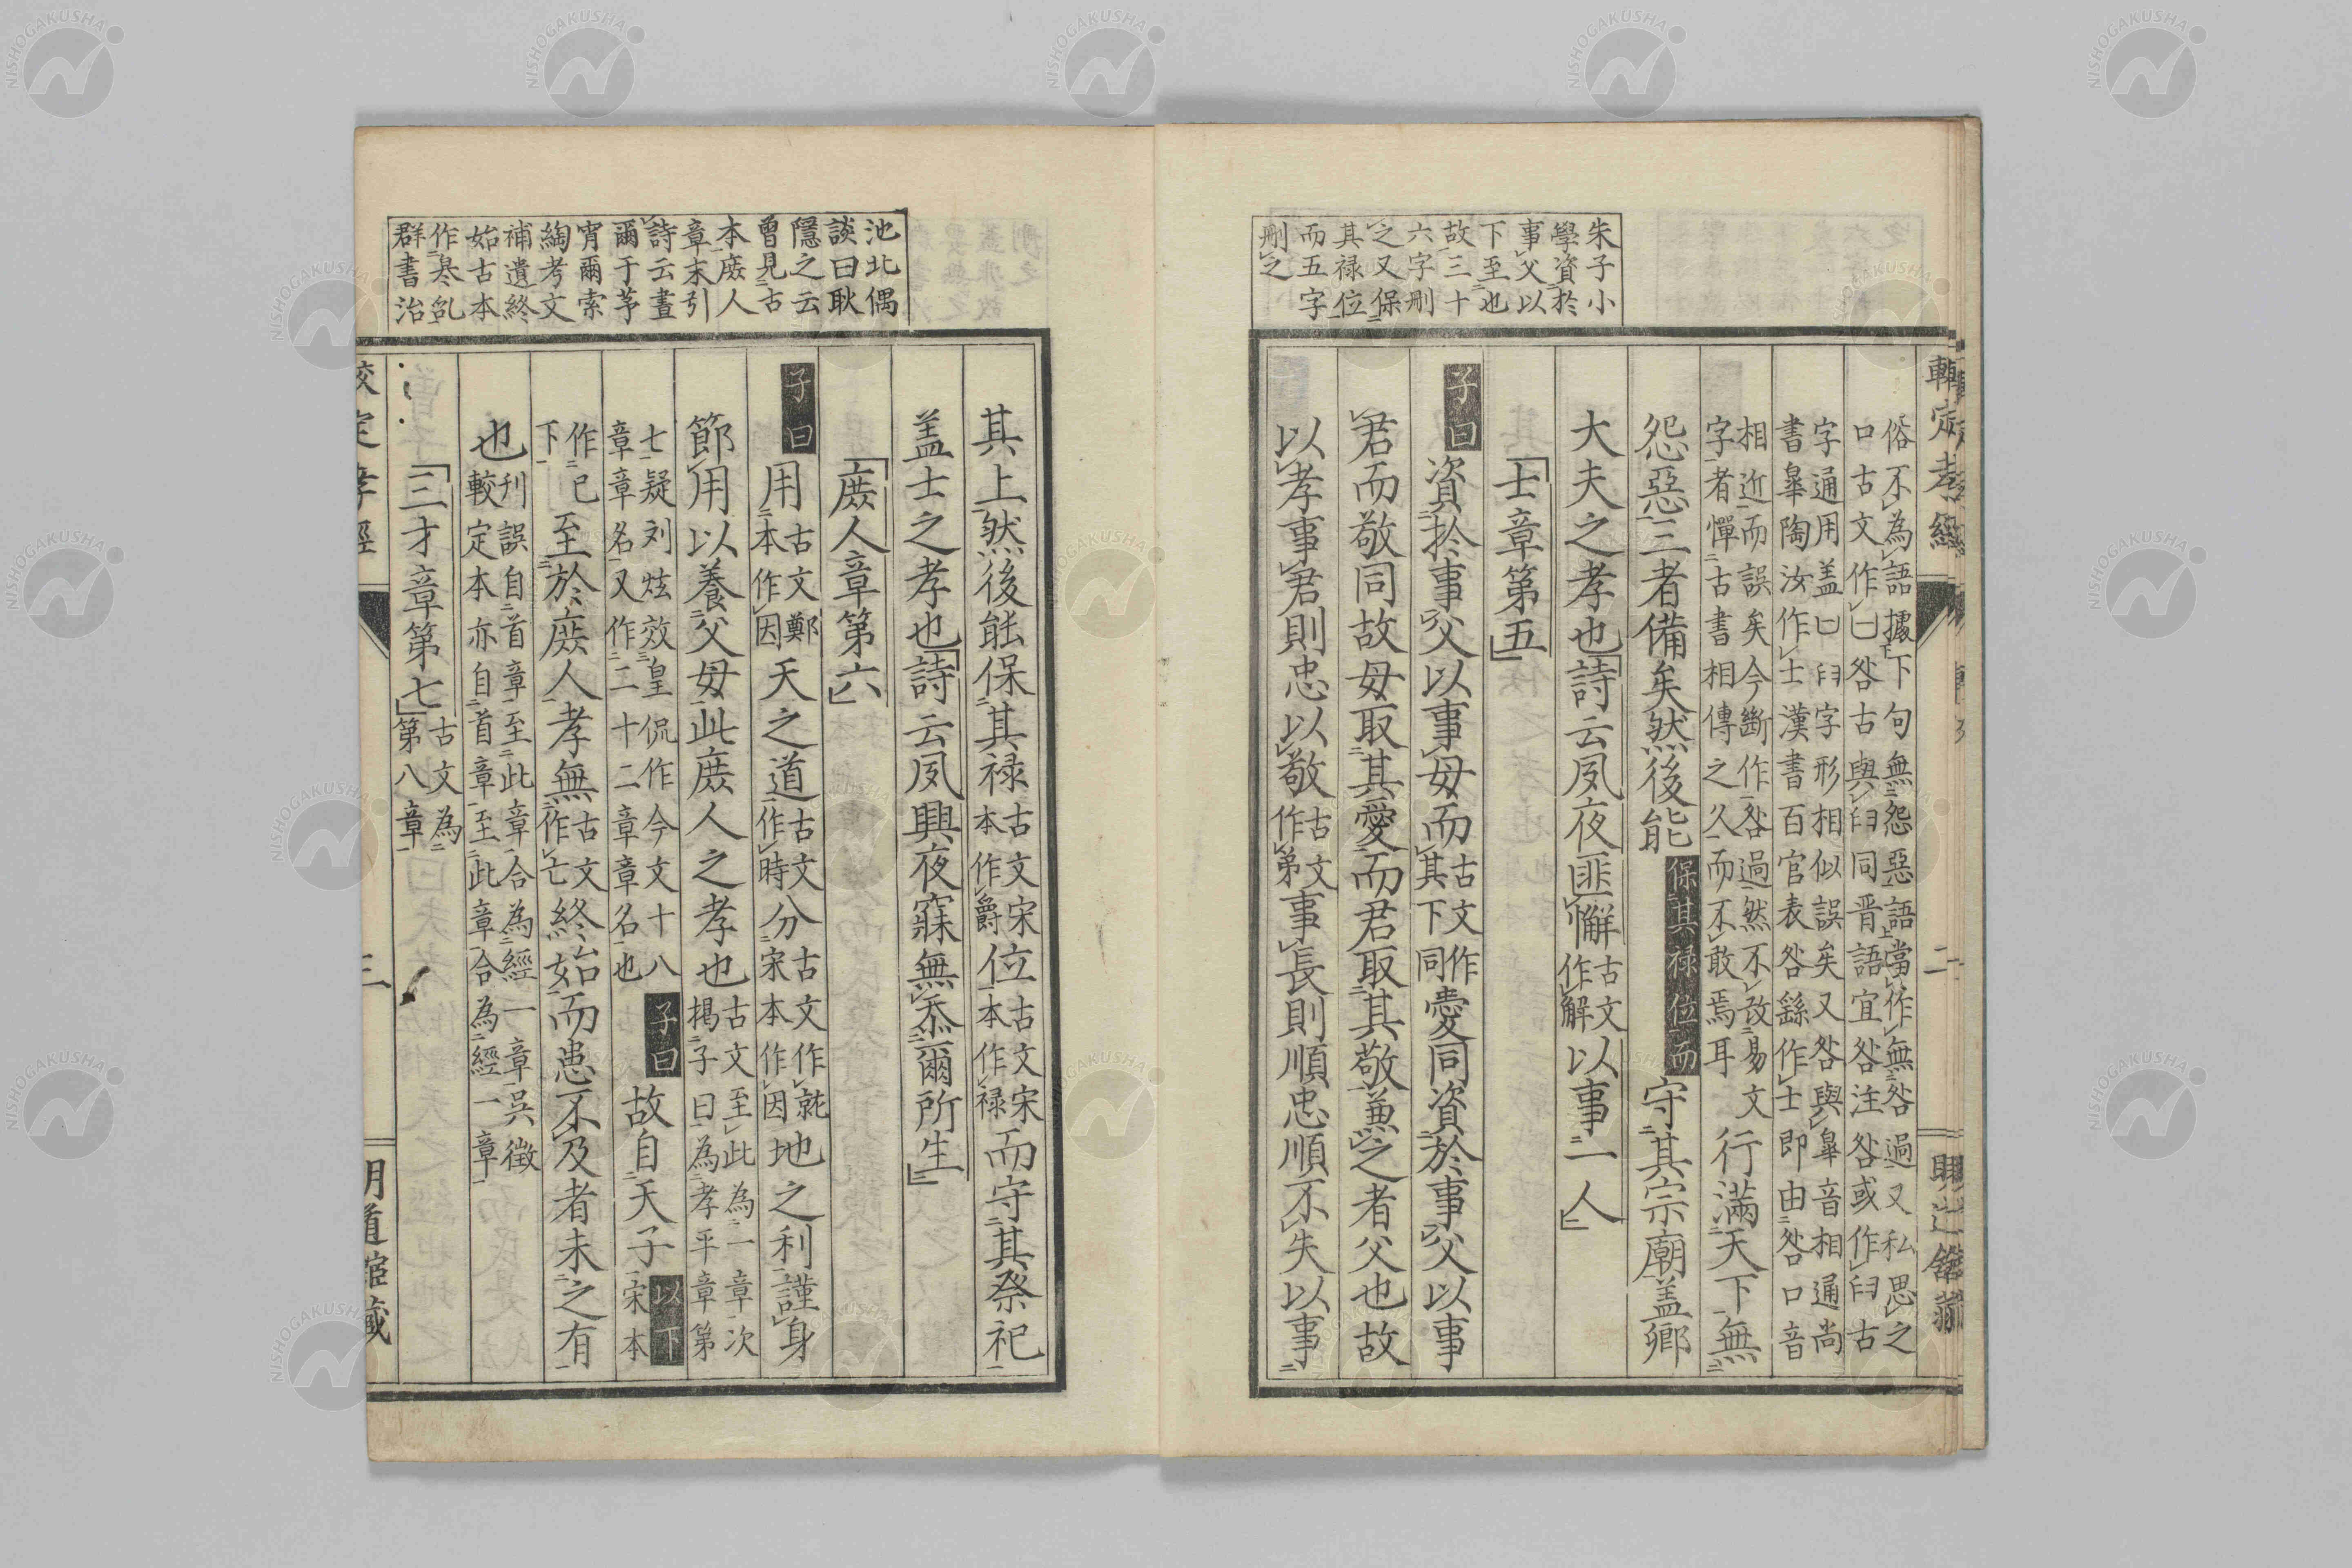 朱子小
學資於
事父以
下至也
故三十
六字刪
之又保
其禄位
而五字
刪之
較定孝經 二 明道館藏
俗不為語據下句無怨惡語當作無咎過又私思之
口古文作曰咎古與臼同晋語宜咎注咎或作臼古
字通用盖曰臼字形相似誤矣又咎與皋音相通尚
書皋陶汝作士漢書百官表咎繇作士即由咎口音
相近而誤矣今斷作咎過然不改易文
字者憚古書相傳之久而不敢焉耳行滿天下無
怨惡三者備矣然後能保其禄位而守其宗廟盖鄉
大夫之孝也詩云夙夜匪懈古文作解以事一人
士章第五
子曰資於事父以事母而古文作其下同愛同資於事父以事
君而敬同故母取其愛而君取其敬兼之者父也故
以孝事君則忠以敬古文作弟事長則順忠順不失以事
池北偶
談曰耿
隱之云
曾見古
本庶人
章末引
詩云晝
爾于茅
宵爾索
綯考文
補遺終
始古本
作㒷乿
群書治
其上然後能保其禄古文宋本作爵位古文宋本作禄而守其祭祀
盖士之孝也詩云夙興夜寐無忝爾所生
庶人章第六
子曰用古文鄭本作因天之道古文作時分古文作就宋本作因地之利謹身
節用以養父母此庶人之孝也古文至此為一章次揭子曰為孝平章第
七疑刘炫效皇侃作今文十八章章名又作二十二章章名也子曰故自天子以下宋本
作已下至於庶人孝無古文作亡終始而患不及者未之有
也刊誤自首章至此章合為經一章吳徵較定本亦自首章至此章合為經一章
三才章第七古文為第八章
較定孝經 三 明道館藏